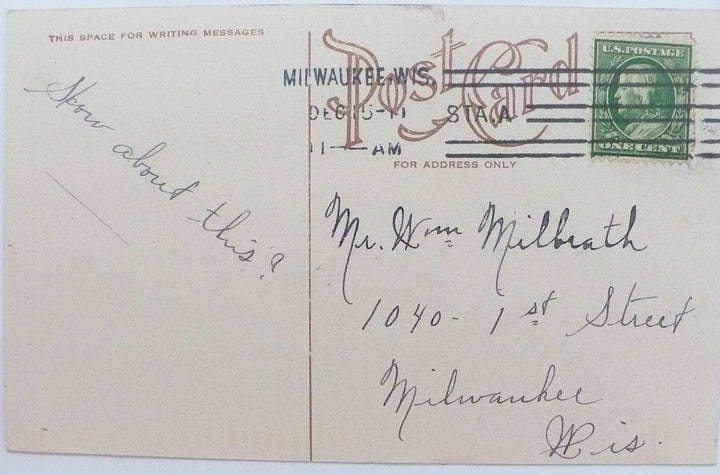 THIS SPACE FOR WRITING MESSAGES
How about this?
Post Card
MILWAUKEE, WIS.
DEC 15-11 STA. A
11 — AM
FOR ADDRESS ONLY
U.S. POSTAGE
ONE CENT
Mr. Wm Milbrath
1040 - 1st Street
Milwaukee
Wis.